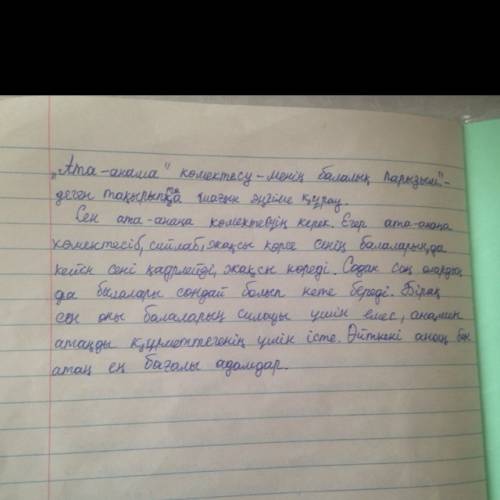 "Ата-анама" көмектесу - менің балалық парызым" -
деген тақырыпқа шағын әңгіме құрау.
Сен ата-анаңа көмектесуің керек. Егер ата-анаңа
көмектесіб, сыйлаб, жақсы көрсе сенің балаларың да
кейін сені қадірлейді, жақсы көреді. Содан соң олардың
да балалары сондай болып кете береді. Бірақ
сен оны балаларың сыйлауы үшін емес, анаңмен
атаңды құрметтегенің үшін істе. Өйткені анаң бен
атаң ең бағалы адамдар.